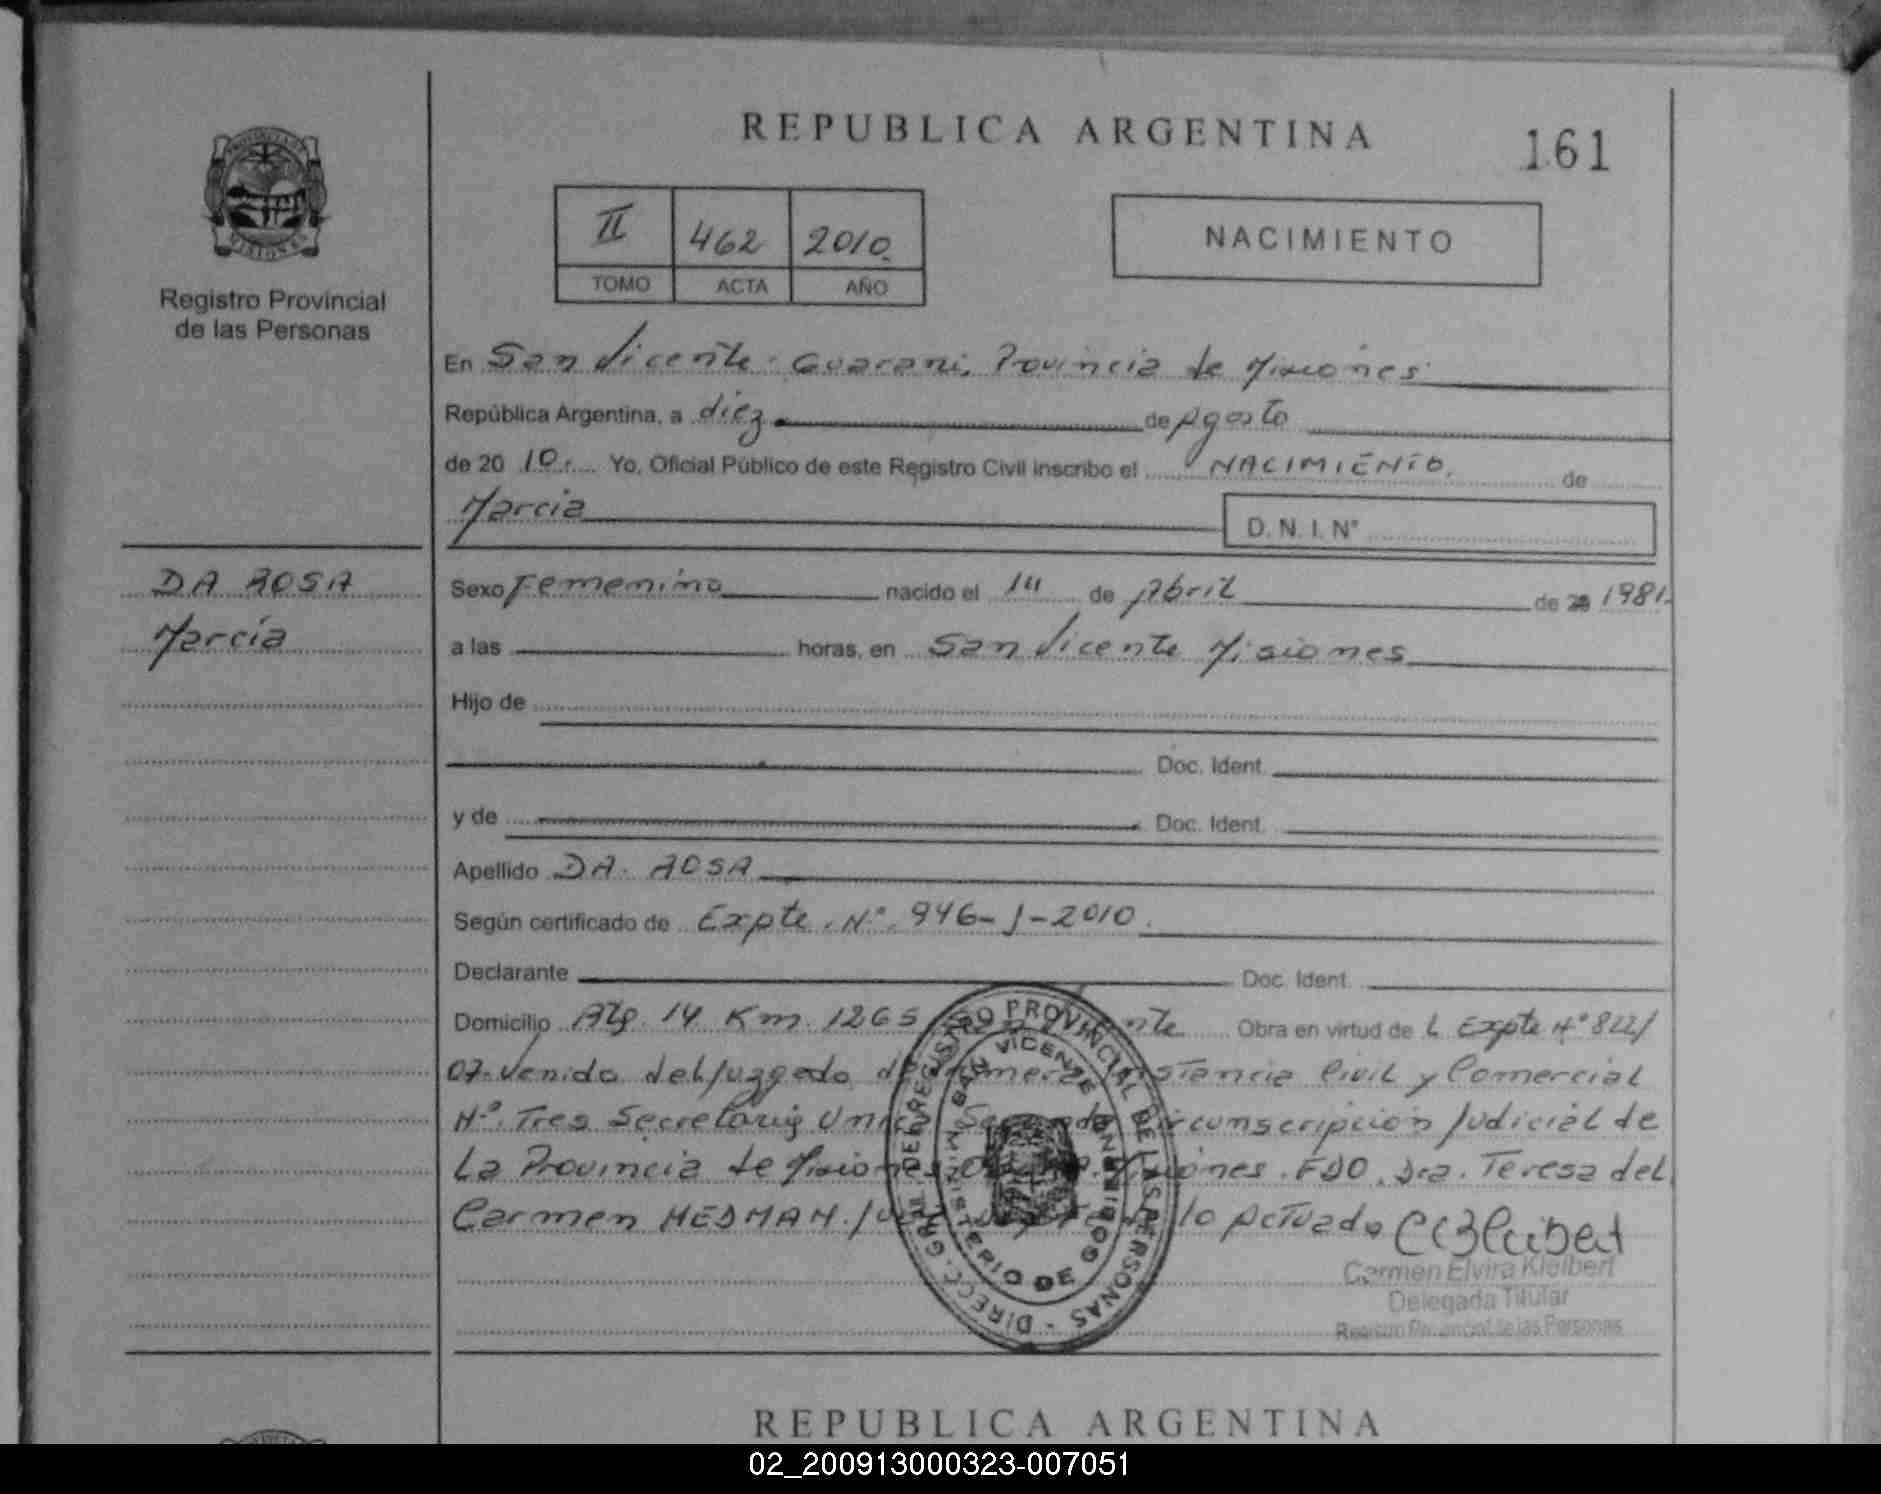 REPUBLICA ARGENTINA
161
II 462 2010
TOMO ACTA AÑO
NACIMIENTO
Registro Provincial
de las Personas
En San Vicente. Guarani, Provincia de Misiones
República Argentina, a diez de Agosto
de 20 10. Yo, Oficial Público de este Registro Civil inscribo el NACIMIENTO. de
Marcia
D. N. I. N°
DA ROSA
Marcia
Sexo Femenino nacido el 14 de Abril de 1981.
a las horas, en San Vicente Misiones
Hijo de
Doc. Ident.
y de Doc. Ident.
Apellido DA ROSA
Según certificado de Expte. N°. 946-J-2010.
Declarante Doc. Ident.
Domicilio 14 Km. 1265 Obra en virtud de L Expte N° 822/
07. Venido del Juzgado de Primera Instancia Civil y Comercial
N°. Tres Secretaria Unica Segunda Circunscripción Judicial de
La Provincia de Misiones Misiones. FDO. Dra. Teresa del
Carmen HEDMAN. lo Actuado
Carmen Elvira Kleibert
Delegada Titular
Registro Provincial de las Personas
DIRECC. GRAL. DEL REGISTRO PROVINCIAL DE LAS PERSONAS
SAN VICENTE
MINISTERIO DE GOBIERNO
REPUBLICA ARGENTINA
02_200913000323-007051